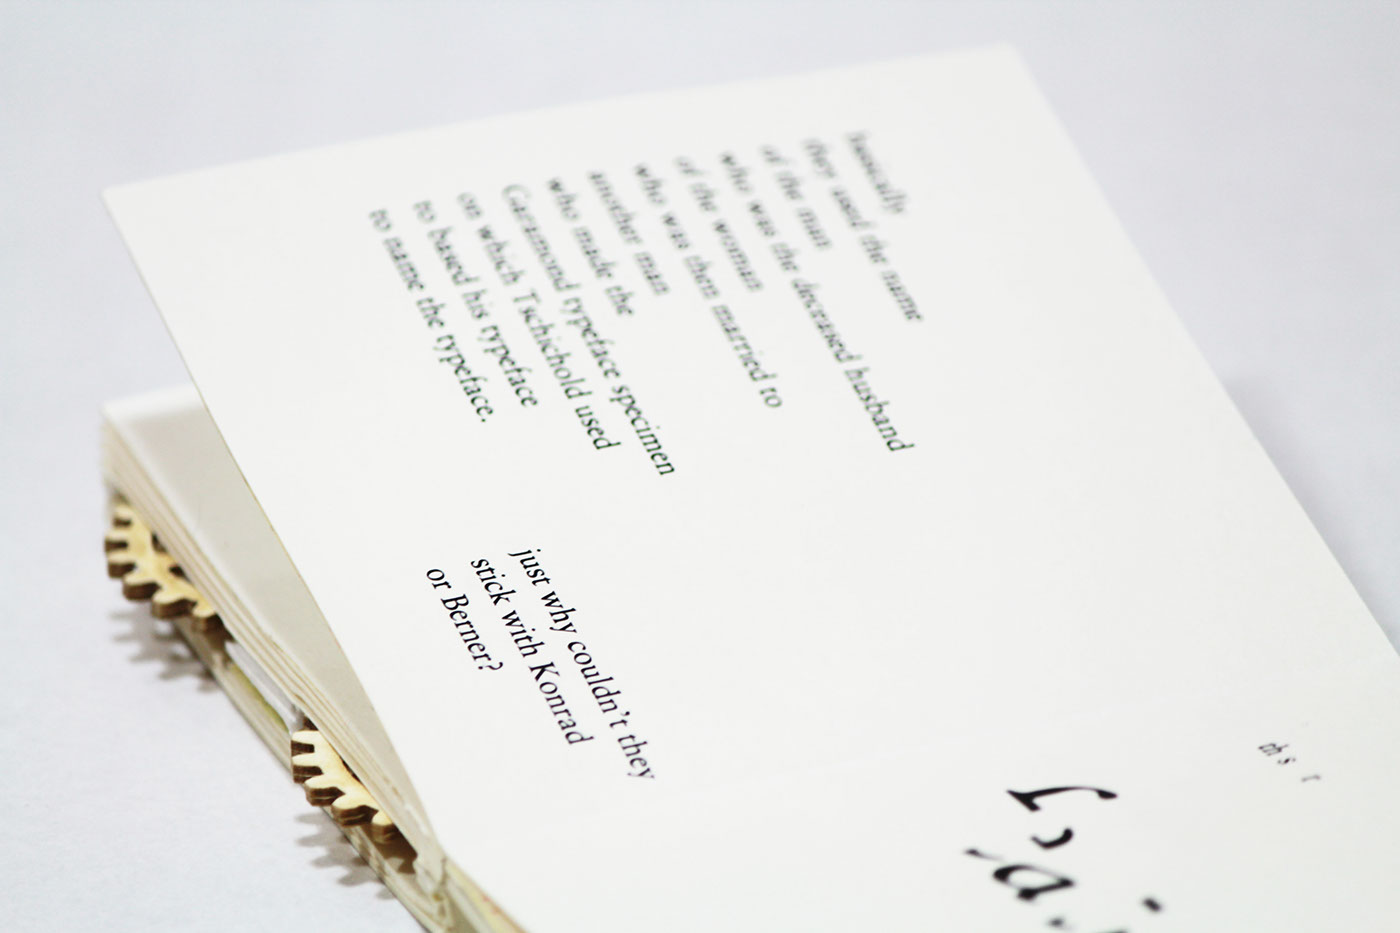 basically
they used the name
of the man
who was the deceased husband
of the woman
who was then married to
another man
who made the
Garamond typeface specimen
on which Tschichold used
to based his typeface
to name the typeface.
just why couldn't they
stick with Konrad
or Berner?